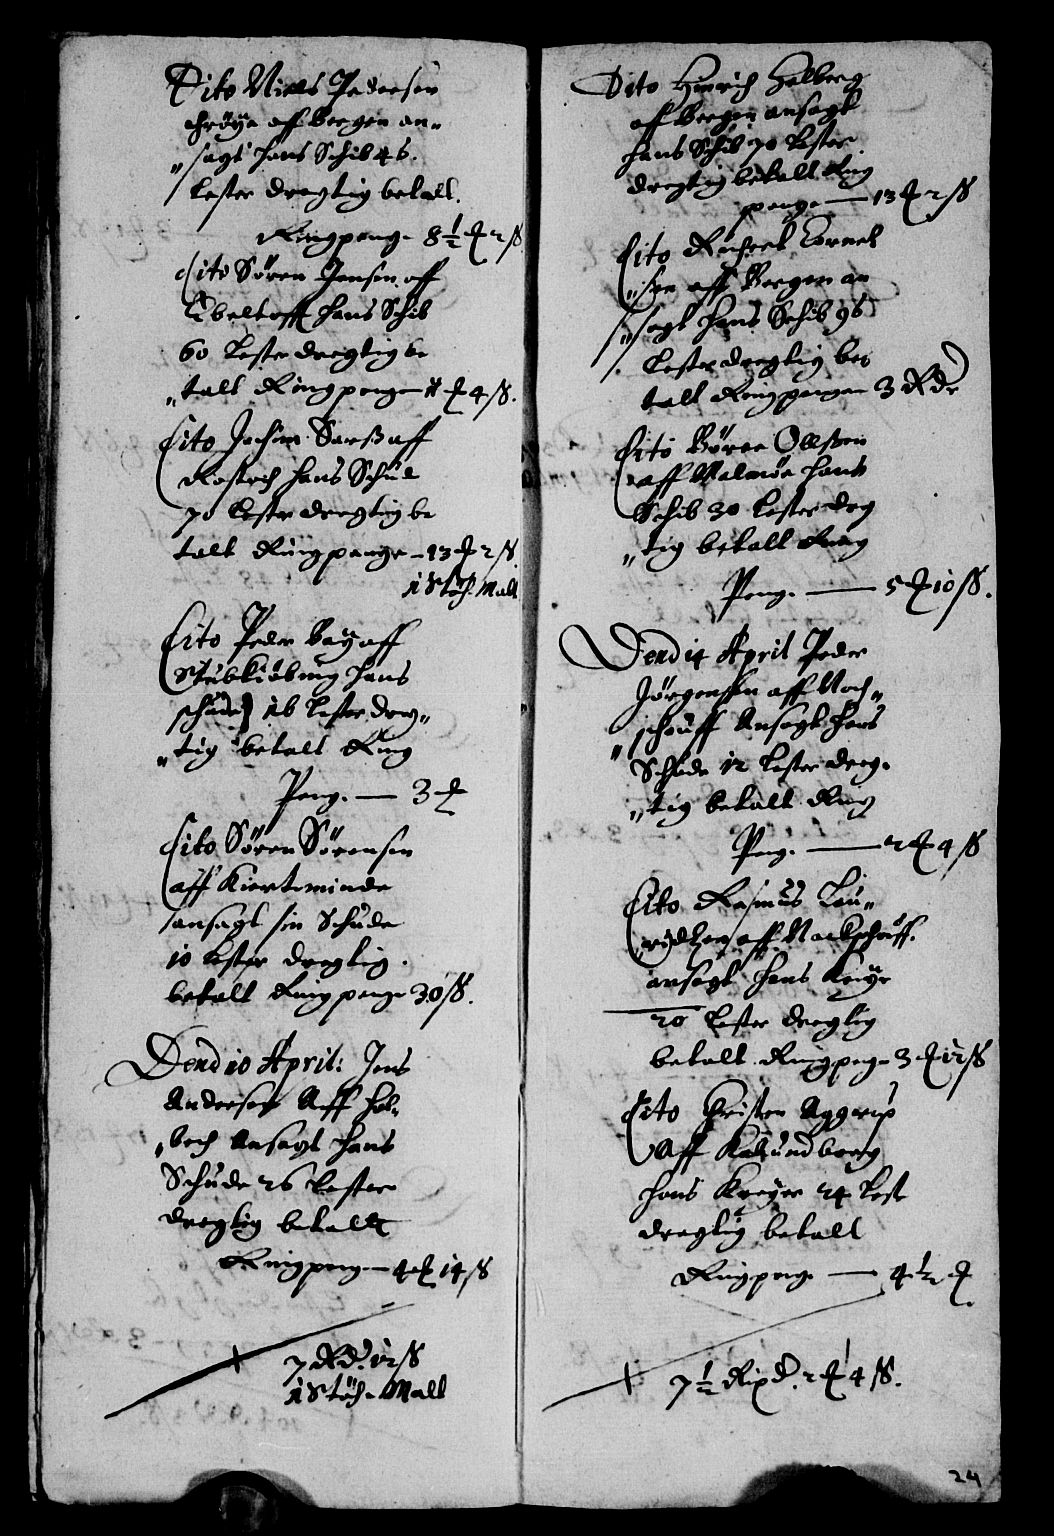 Dito Niels Pedersen
Frøye aff Bergen an=
„sagt hans Schib 46.
Lester dregtig betalt.
Ringpenge 8½ ₰ 2 ß
Dito Søren Jensen aff
Ebeltoff hans Schib
60 Lester dregtig be
„talt Ringpenge 11 ₰ 4 ß.
Dito Jochim Sarß aff
Rostoch hans Schude
70 Lester dregtig be
talt Ringpenge - 13 ₰ 2 ß.
1 Støch. Malt
Dito Peder Bay aff
Stubkiøbing hans
schude 16 Lester dreg„
„tig betalt Ring
Peng. — 3 ₰
Dito Søren Sørensen
aff Kierteminde
ansagt sin Schude
10 Lester dregtig.
betalt Ringpenge 30 ß.
Dend 10 April: Jens
Andersen Aff Hol„
„bech Ansagt hans
Schude 26 Lester
dregtig betalt
Ringpenge — 4 ₰ 14 ß
7 Rd. 12 ß
1 Støch. Malt
Dito Hinrich Holberg
aff Bergen ansagt
hans Schib 70 Lester
dregtig betalt Ring
penge — 13 ₰ 2 ß
Dito Cornel
„sen aff Bergen an
„sagt hans Schib 96
Lester dregtig be=
talt Ringpenge 3 Rdr
Dito Børre Ollsøen
aff Malmøe hans
Schib 30 Lester dreg
„tig betalt Ring
Peng. — 5 ₰ 10 ß.
Dend 14 April Peder
Jørgensen aff Nach=
„schouff Ansagt hans
Schude 12 Lester dreg=
„tig betalt Ring
Peng. — 2 ₰ 4 ß
Dito Rasmus Lau„
ridtzen aff Nachschouff.
ansagt hans Kreyer
20 Lester dregtig
betalt Ringpenge 3 ₰ 12 ß
Dito Christen Aggerup
Aff Kalundborg
hans Kreyer 24 Lest
dregtig betalt
Ringpenge — 4½ ₰
7½ Rixd. 2 ₰ 4 ß.
24